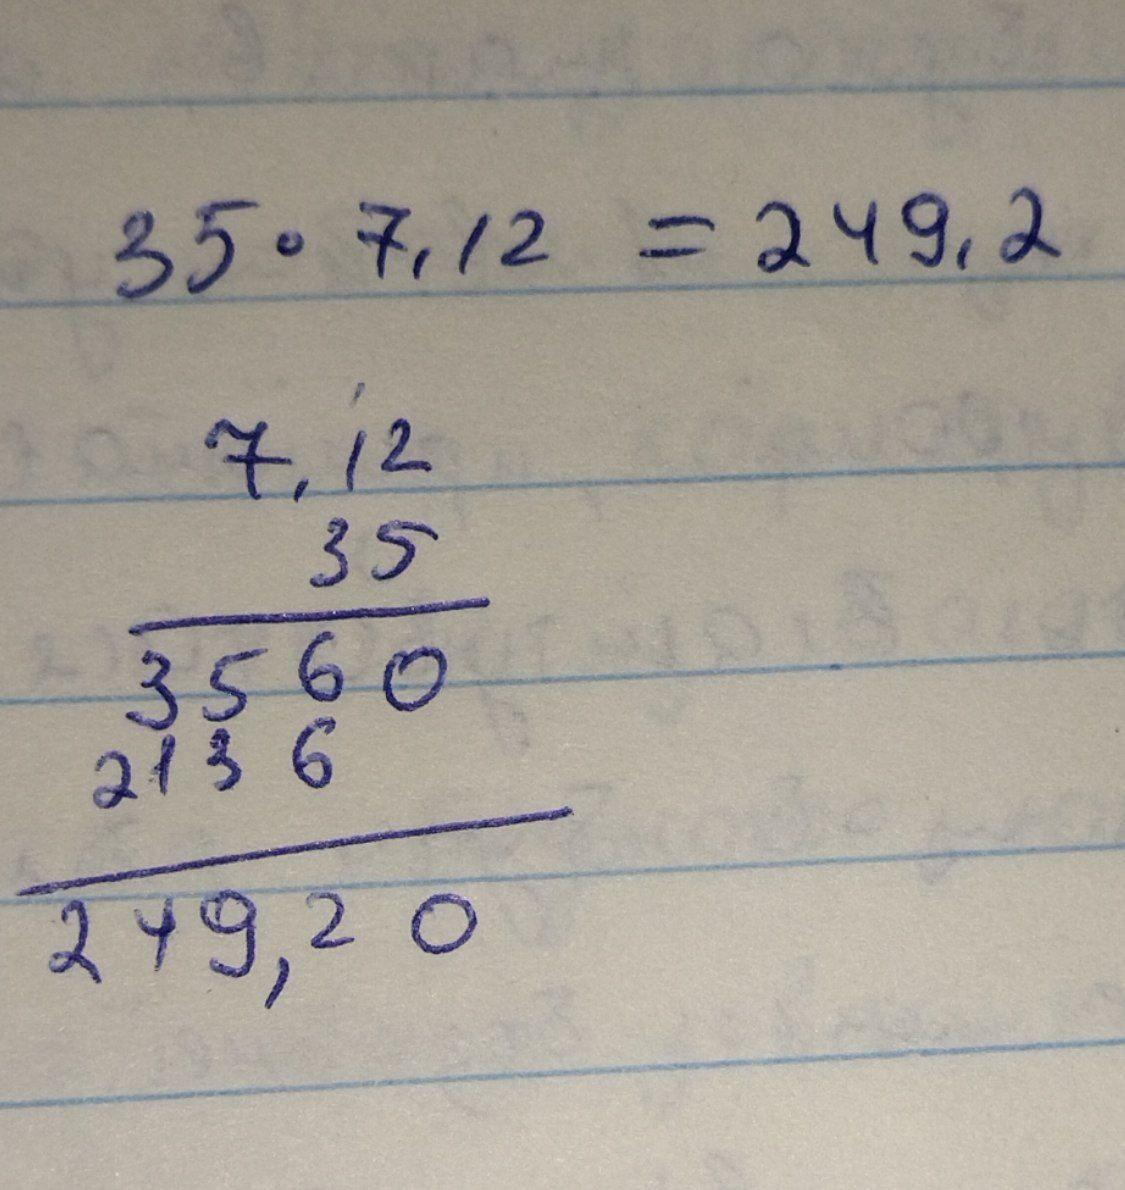 35 · 7,12 = 249,2
1
7,12
35
3560
2136
249,20